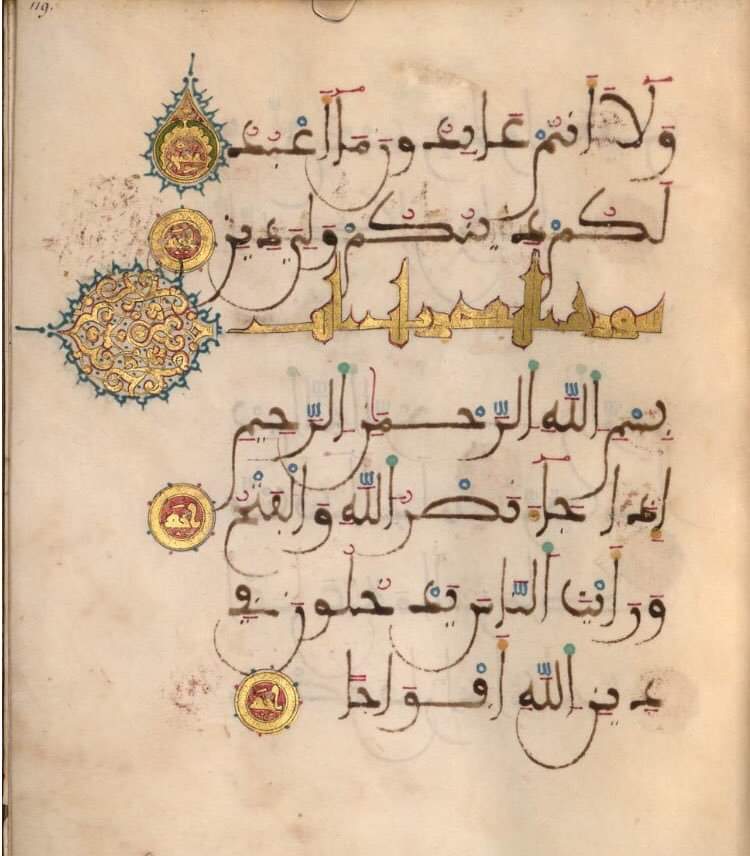 119.
وَلَآ أَنتُمْ عَٰبِدُونَ مَآ أَعْبُدُ
لَكُمْ دِينُكُمْ وَلِيَ دِينِ
سورة النصر
بِسْمِ اللَّهِ الرَّحْمَٰنِ الرَّحِيمِ
إِذَا جَآءَ نَصْرُ اللَّهِ وَالْفَتْحُ
وَرَأَيْتَ النَّاسَ يَدْخُلُونَ فِي
دِينِ اللَّهِ أَفْوَاجًا